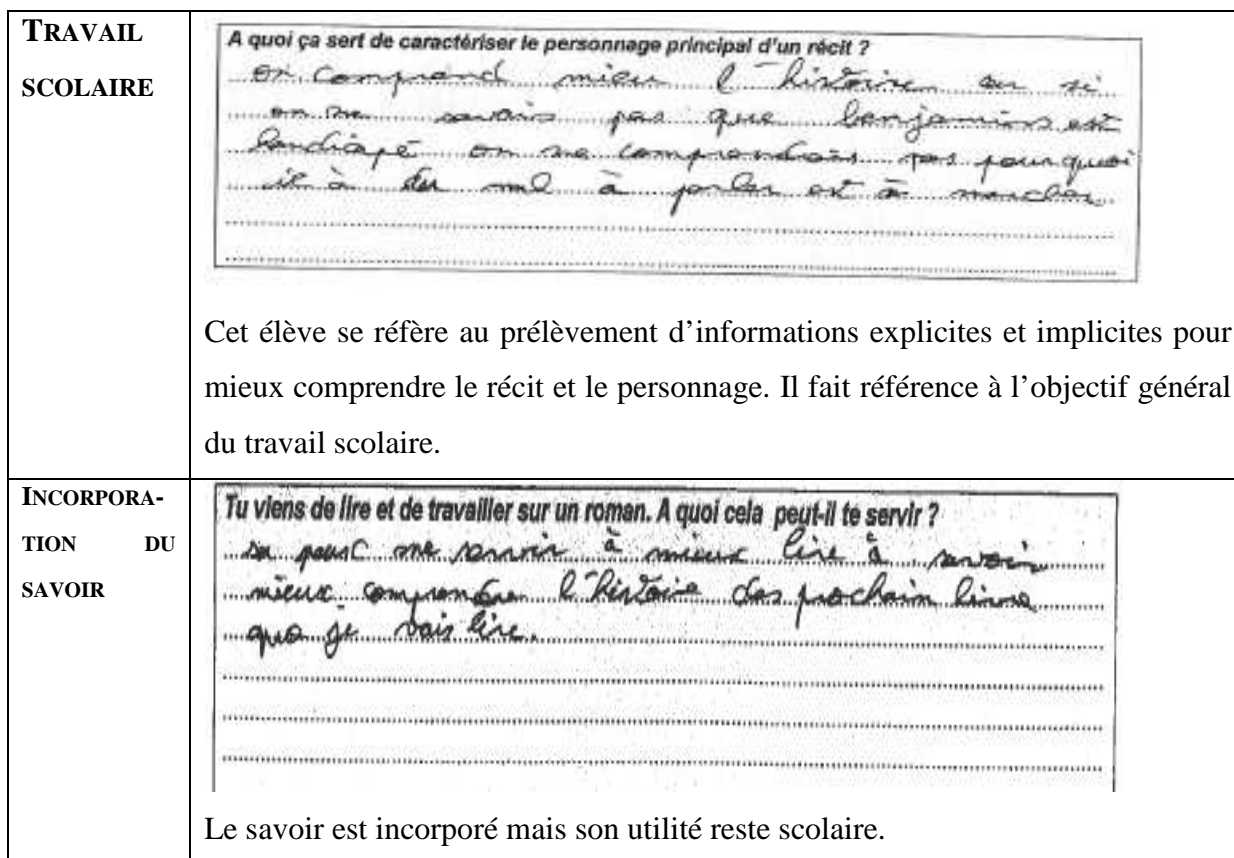 TRAVAIL
SCOLAIRE
A quoi ça sert de caractériser le personnage principal d'un récit ?
on comprend mieu l'histoire car si
on ne savais pas que benjamins est
handiapé on ne comprendais pas pourquoi
il à du mal à parler est à marcher
Cet élève se réfère au prélèvement d'informations explicites et implicites pour
mieux comprendre le récit et le personnage. Il fait référence à l'objectif général
du travail scolaire.
INCORPORA-
TION DU
SAVOIR
Tu viens de lire et de travailler sur un roman. A quoi cela peut-il te servir ?
sa peust me servir à mieux lire à savoir
mieux comprendre l'histoire des prochain livre
que je vais lire.
Le savoir est incorporé mais son utilité reste scolaire.